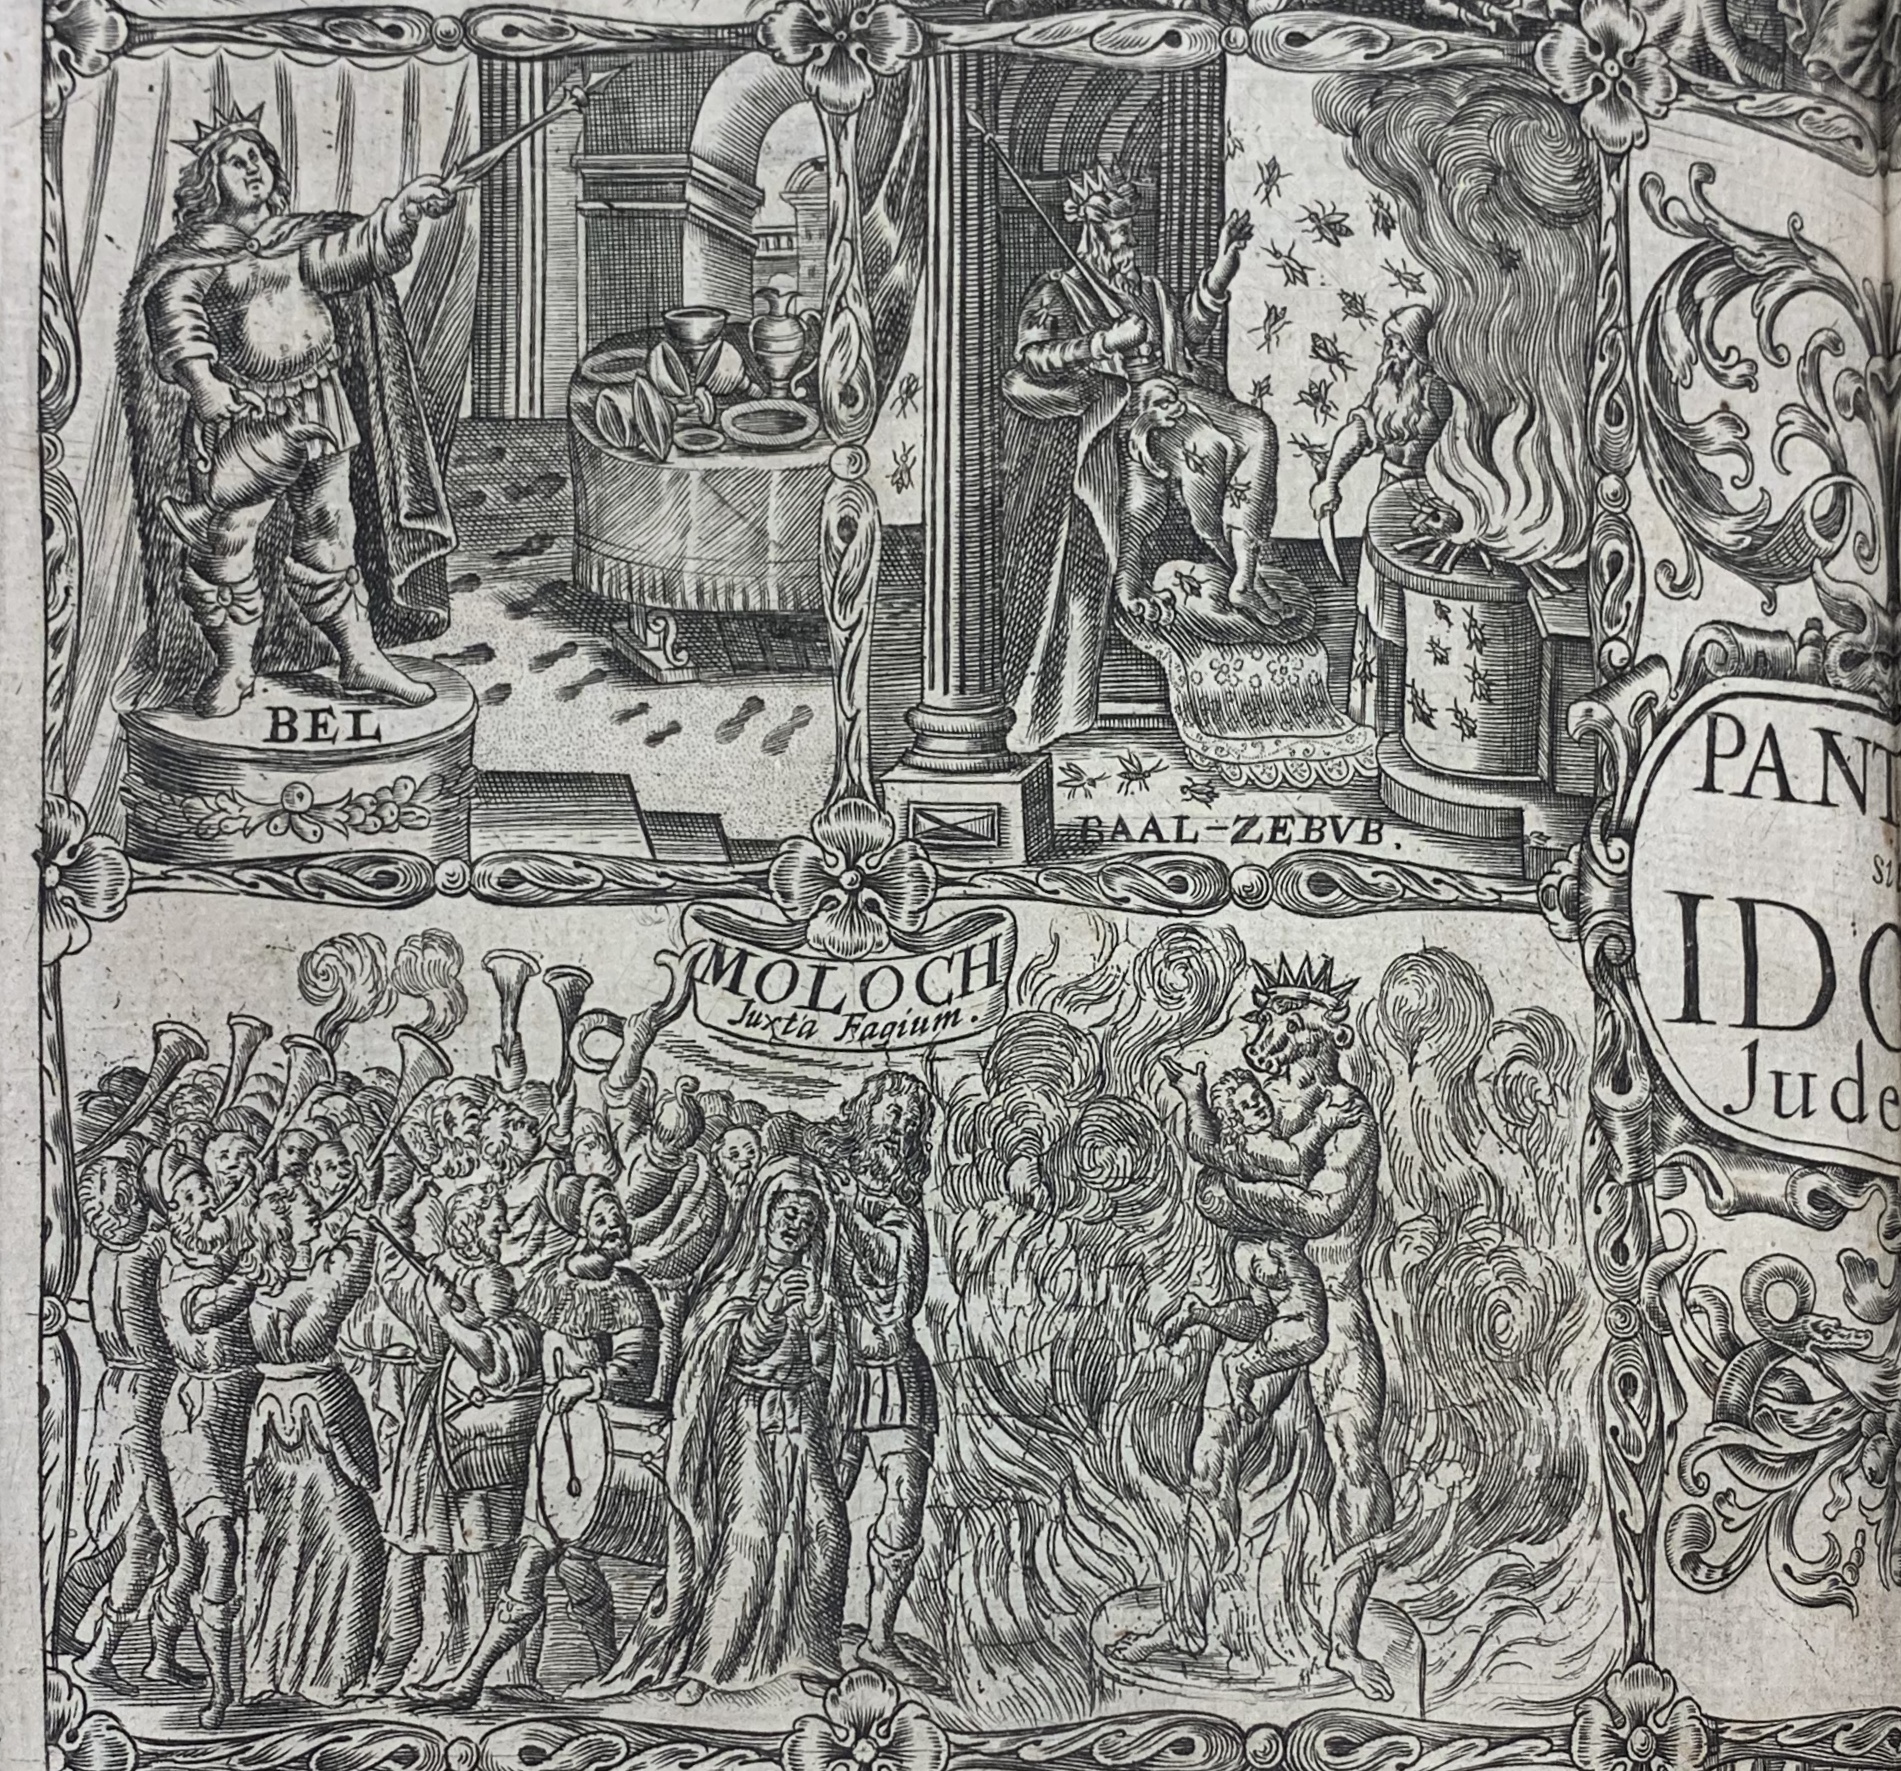 BEL
BAAL-ZEBVB.
MOLOCH
Juxta Fagium.
PANT
si
IDO
Jude